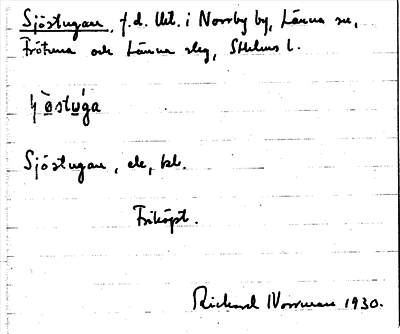 Sjöstugan, f.d. lht. i Norrby by, Länna sn,
Frötuna och Länna slg, Sthlms l.
Sjöstugan, ele, bl.
Friköpt.
Richard Norrman 1930.